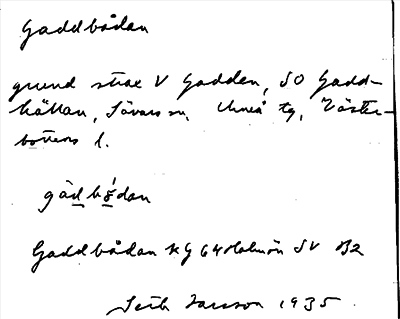 Gaddbådan
grund strax V Gadden, SO Gadd-
hällan, Sävars sn, Umeå tg, Väster-
bottens l.
gàdbó̱dan
Gaddbådan KG 64 Holmön SV B2
Larsson 1935